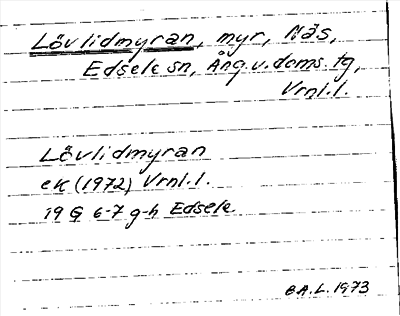 Lövlidmyran, myr, Näs,
Edsele sn, Ång.v.doms.tg,
Vrnl.l.
Lövlidmyran
ek (1972) Vrnl.l.
19 G 6-7 g-h Edsele
B.A.L. 1973